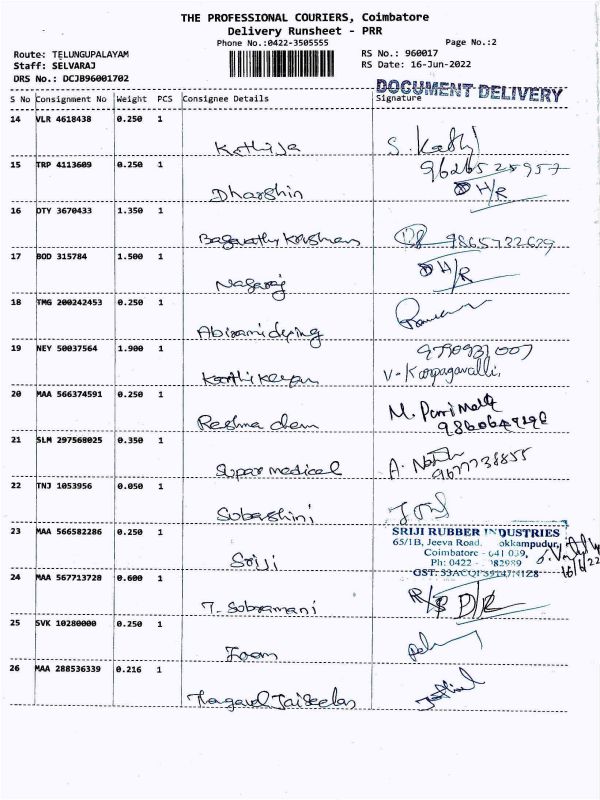 THE PROFESSIONAL COURIERS, Coimbatore
Delivery Runsheet - PRR
Phone No.:0422-3505555
Page No.:2
Route: TELUNGUPALAYAM
RS No.: 960017
Staff: SELVARAJ
RS Date: 16-Jun-2022
DRS No.: DCJB96001702
DOCUMENT DELIVERY
S No Consignment No Weight PCS Consignee Details Signature
14 VLR 4618438 0.250 1
Kathija
15 TRP 4113609 0.250 1
9626525957
Dharshin H/R
16 OTY 3670433 1.350 1
Bagavathy Krishnan
17 BOD 315784 1.500 1
H/R
Nagaraj
18 TMG 200242453 0.250 1
Abiramidyeing
19 NEY 50037564 1.900 1
Karthikeyan V-Karpagavalli
20 MAA 566374591 0.250 1
M.
Reshma
21 SLM 297568025 0.350 1
Supar medical A. 9677738855
22 TNJ 1053956 0.050 1
Subashini
23 MAA 566582286 0.250 1
SRIJI RUBBER INDUSTRIES
65/1B, Jeeva Road, okkampudur,
Coimbatore - 641 039,
Sriji
Ph: 0422 - 982989
16/6/22
24 MAA 567713728 0.600 1
T. Subramani
25 SVK 10280000 0.250 1
26 MAA 288536339 0.216 1